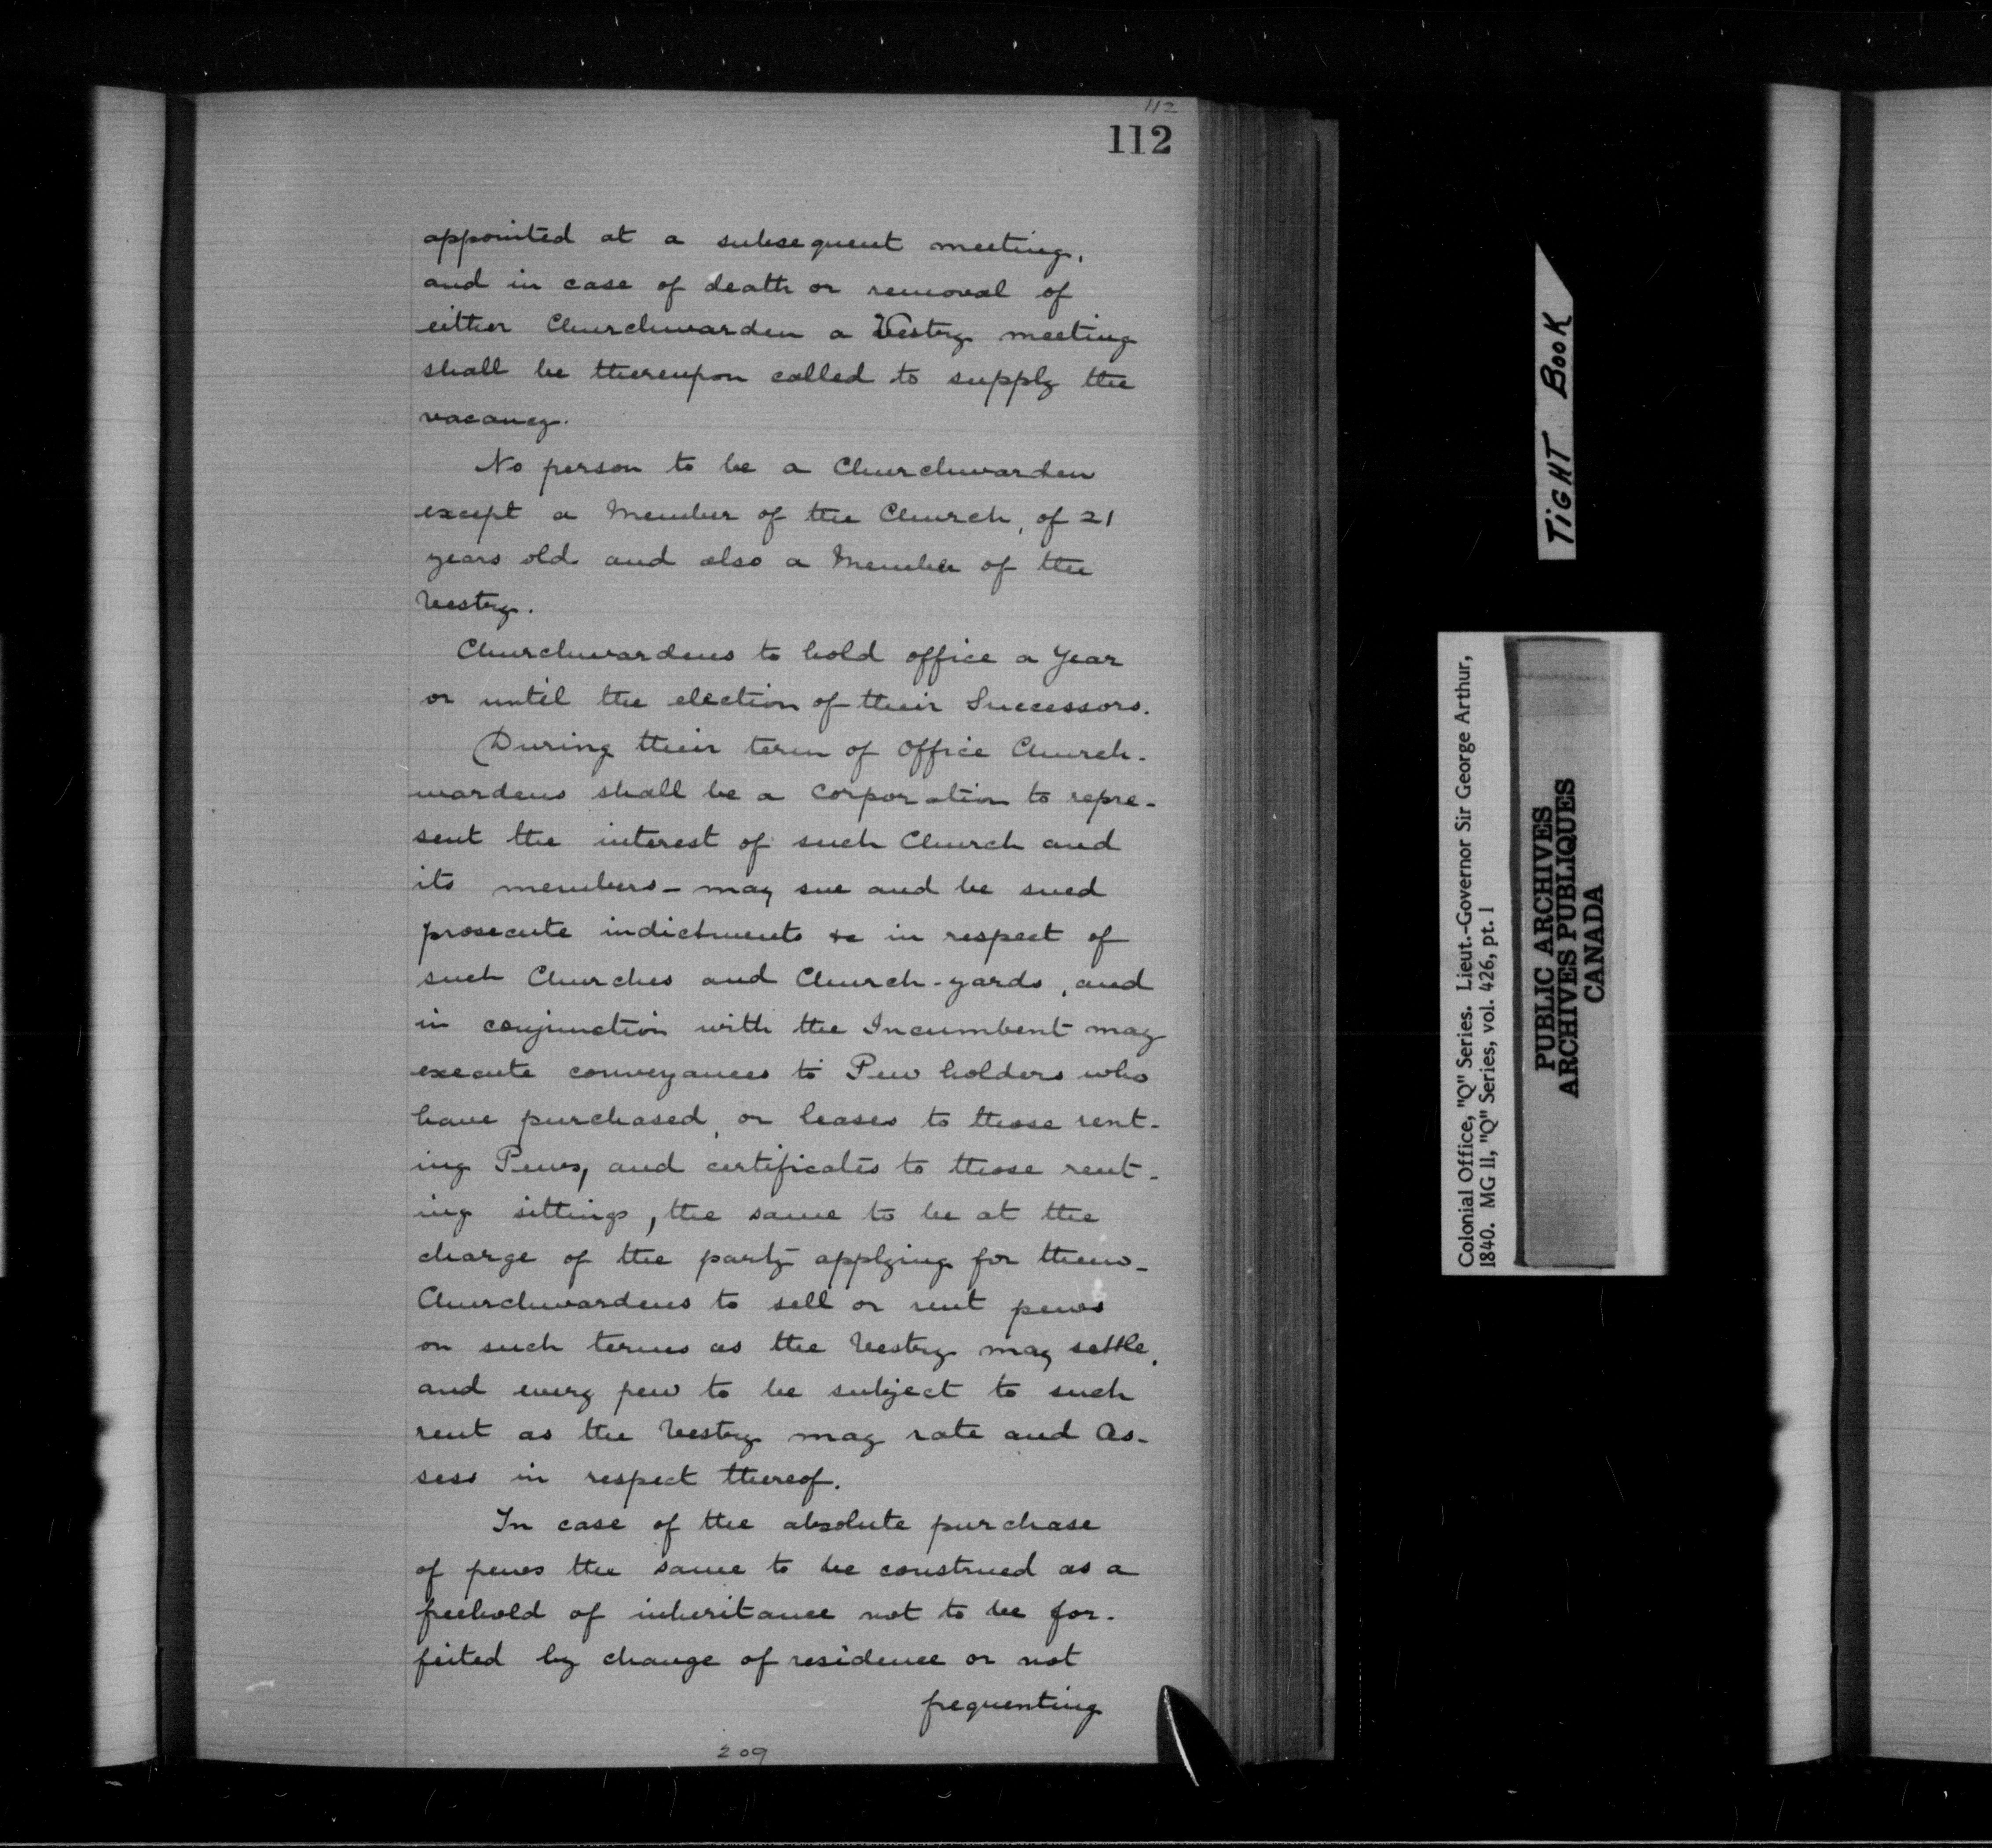 112
112
appointed at a subsequent meeting,
and in case of death or removal of
either Churchwarden a Vestry meeting
shall be thereupon called to supply the
vacancy.
No person to be a Churchwarden
except a Member of the Church, of 21
years old and also a Member of the
Vestry.
Churchwardens to hold office a Year
or until the election of their Successors.
During their term of Office Church-
wardens shall be a Corporation to repre-
sent the interest of such Church and
its members - may sue and be sued
prosecute indictments &c in respect of
such Churches and Church-yards, and
in conjunction with the Incumbent may
execute conveyances to Pew holders who
have purchased, or leases to those rent-
ing Pews, and certificates to those rent-
ing sittings, the same to be at the
charge of the party applying for them -
Churchwardens to sell or rent pews
on such terms as the Vestry may settle,
and every pew to be subject to such
rent as the Vestry may rate and As-
sess in respect thereof.
In case of the absolute purchase
of pews the same to be construed as a
freehold of inheritance not to be for-
feited by change of residence or not
frequenting
209
TIGHT BOOK
Colonial Office, "Q" Series. Lieut.-Governor Sir George Arthur,
1840. MG 11, "Q" Series, vol. 426, pt. 1
PUBLIC ARCHIVES
ARCHIVES PUBLIQUES
CANADA